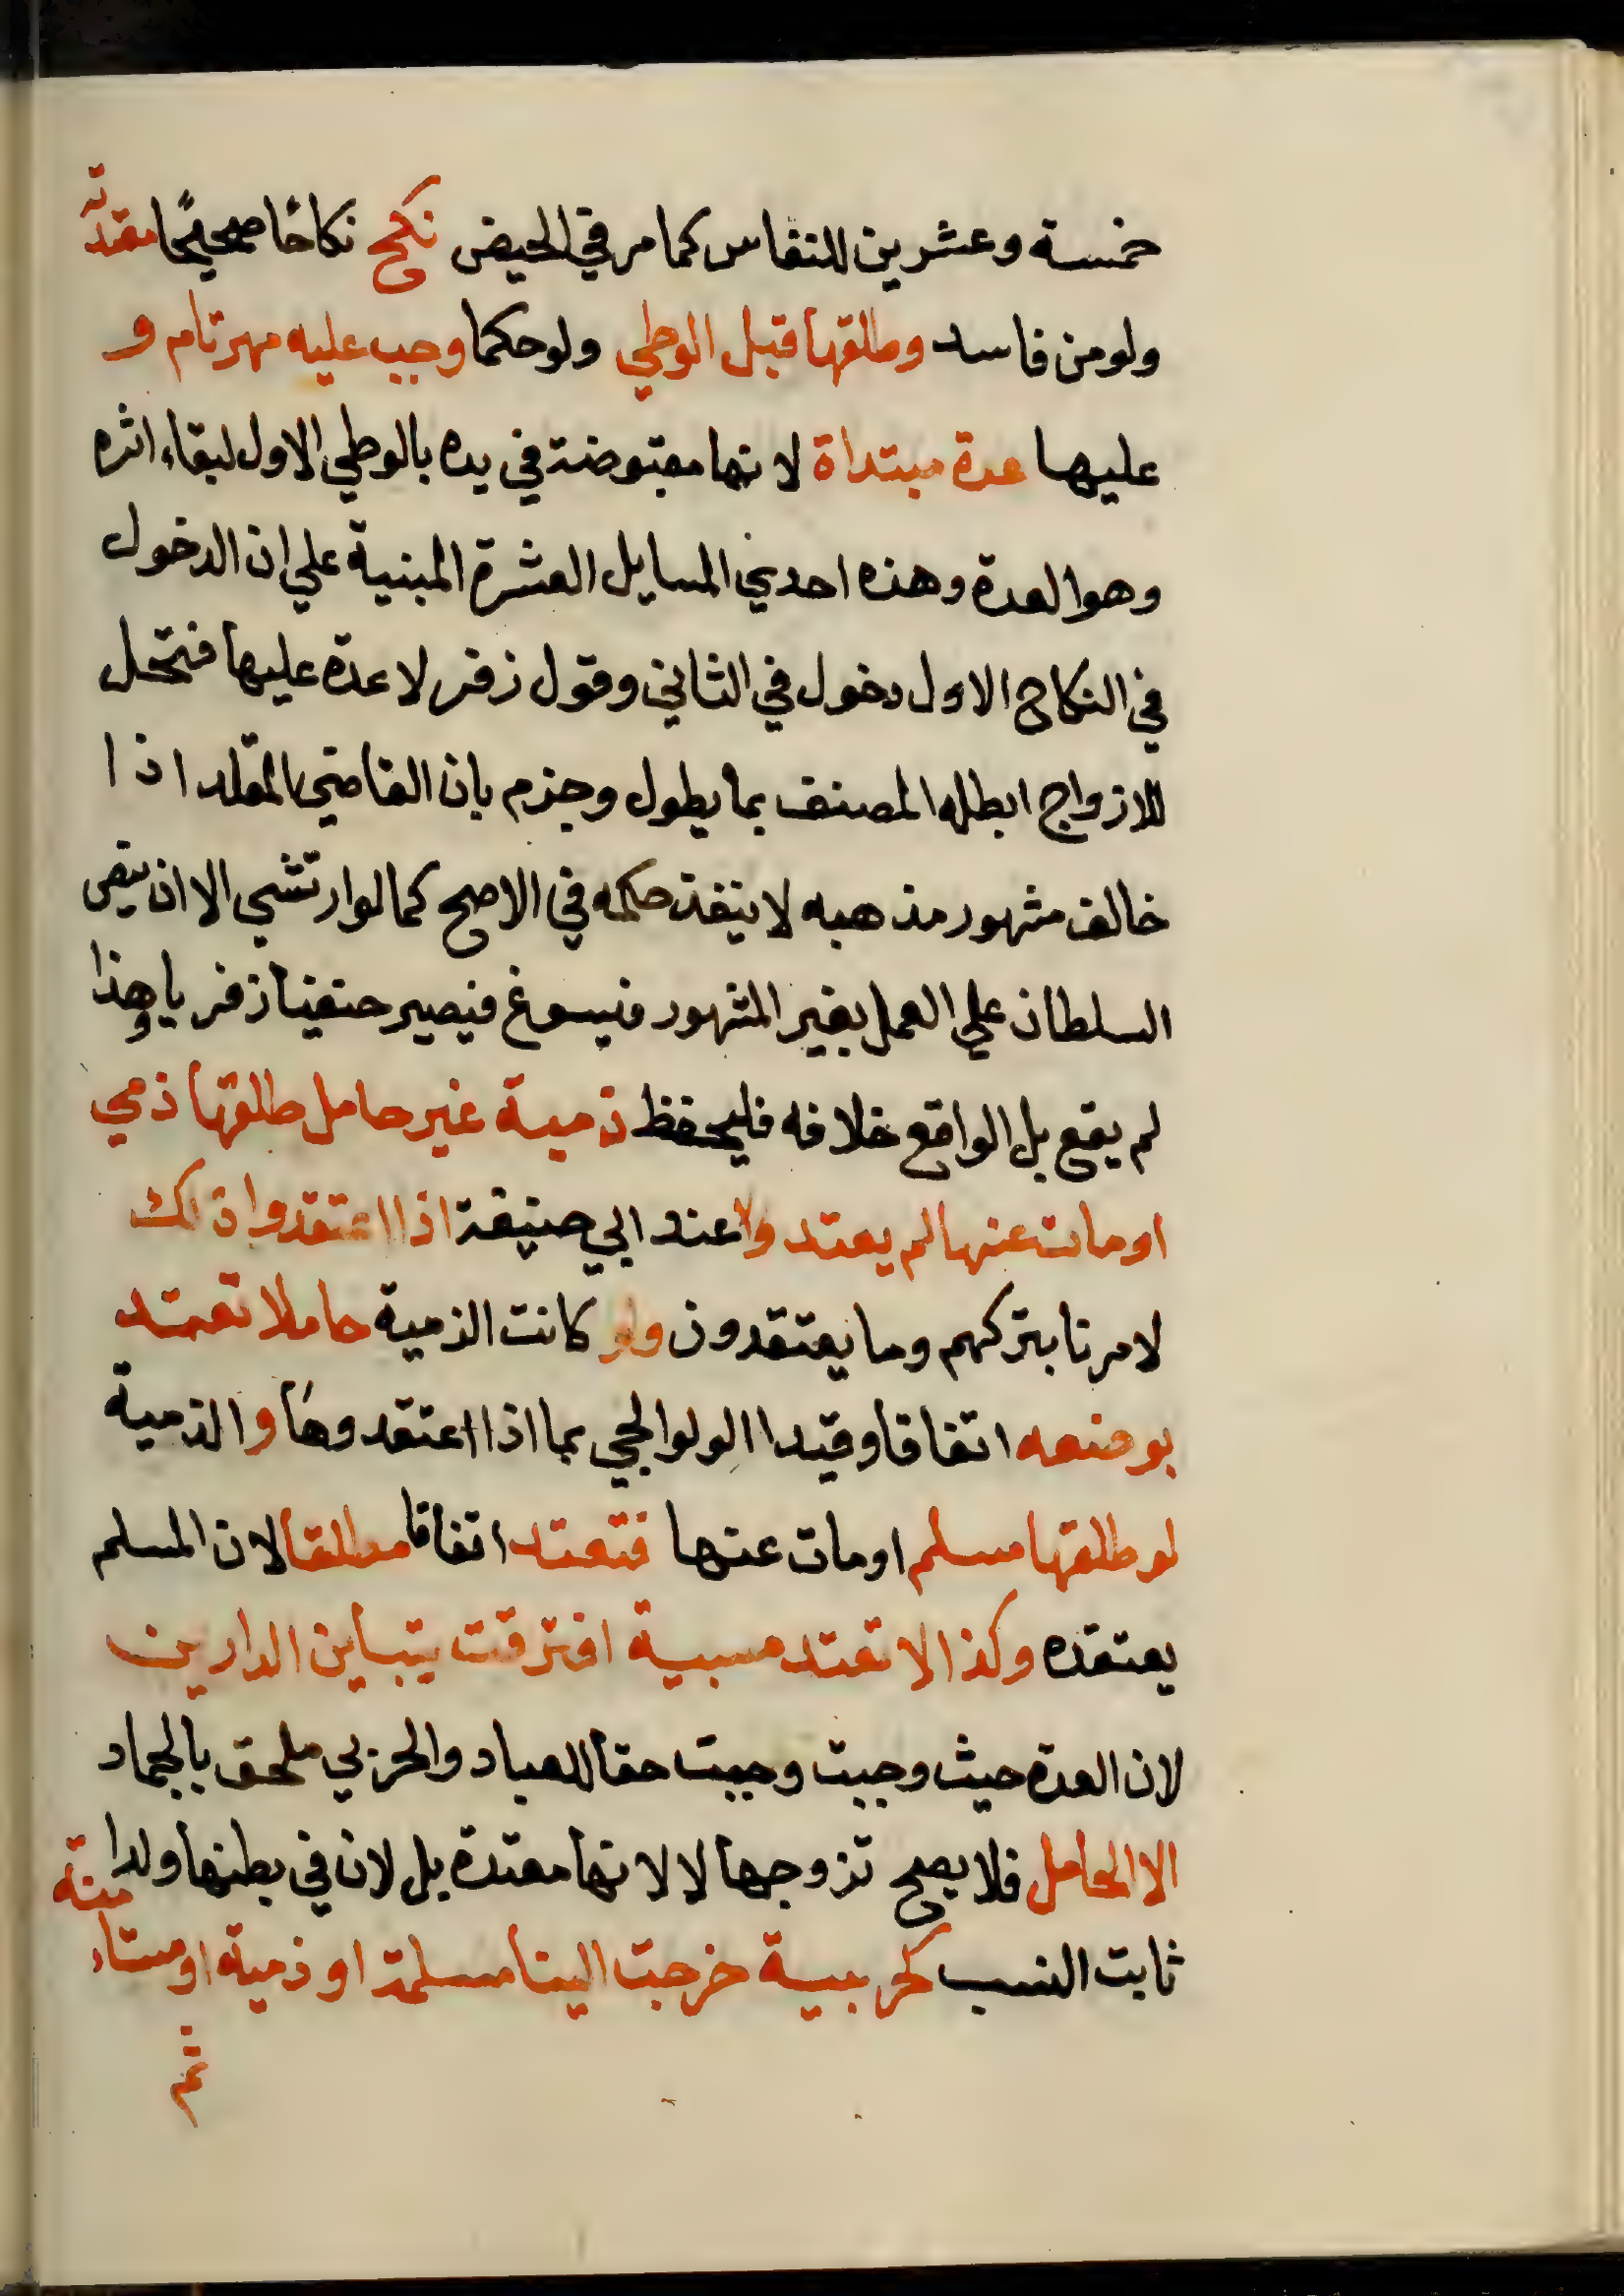 خمسة وعشرين للنفاس كما مر في الحيض نكح نكاحًا صحيحًا معتدته
ولو من فاسد وطلقها قبل الوطي ولو حكما وجب عليه مهر تام و
عليها عدة مبتداة لانها مقبوضة في يده بالوطي الاول لبقاء اثره
وهو العدة وهذه احدي المسايل العشرة المبنية علي ان الدخول
في النكاح الاول دخول في الثاني وقول زفر لا عدة عليها فتحل
للازواج ابطله المصنف بما يطول وجزم بان القاضي المقلد اذا
خالف مشهور مذهبه لا ينفذ حكمه في الاصح كما لو ارتشي الا ان ينص
السلطان علي العمل بغير المشهور فيسوغ فيصير حنفيا زفريا وهذا
لم يقع بل الواقع خلافه فليحفظ ذمية غير حامل طلقها ذمي
او مات عنها لم يعتد ولا عند ابي حنيفة اذا اعتقدوا ذلك
لامرنا بتركهم وما يعتقدون ولو كانت الذمية حاملا تعتد
بوضعه اتفاقا وقيدا الولوالجي بما اذا اعتقدوها والذمية
لو طلقها مسلم او مات عنها فتعتد اتفاقا مطلقا لان المسلم
يعتقده وكذا لا تعتد مسبية افترقت بتباين الدارين
لان العدة حيث وجبت وجبت حقا للعباد والحربي ملحق بالجماد
الا الحامل فلا يصح تزوجها لا لانها معتدة بل لان في بطنها ولدا
ثابت النسب كحربيية خرجت الينا مسلمة او ذمية او مستاء منة
ثم